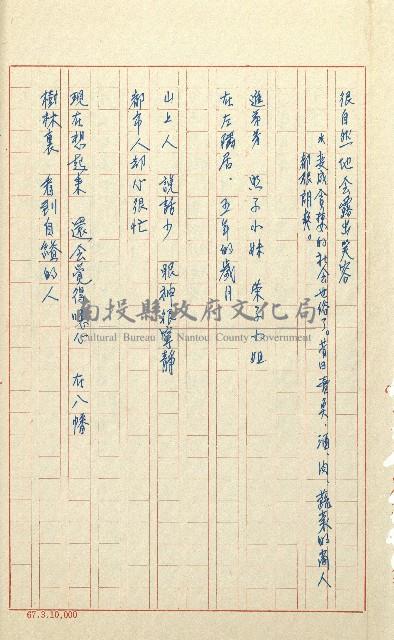 很自然地會露出笑容
變成貪婪的社會世俗了。昔日賣魚．酒、肉、蔬菜的商人
進弟弟 照子小妹 榮子小姐
在左隔居．五年的歲月
山上人 說話少 眼神很寧靜
都市人卻心很忙
現在想起來 還會覺得噁心 在八幡
樹林裏 看到自縊的人
南投縣政府文化局
Cultural Bureau of Nantou County Government
67.3.10,000